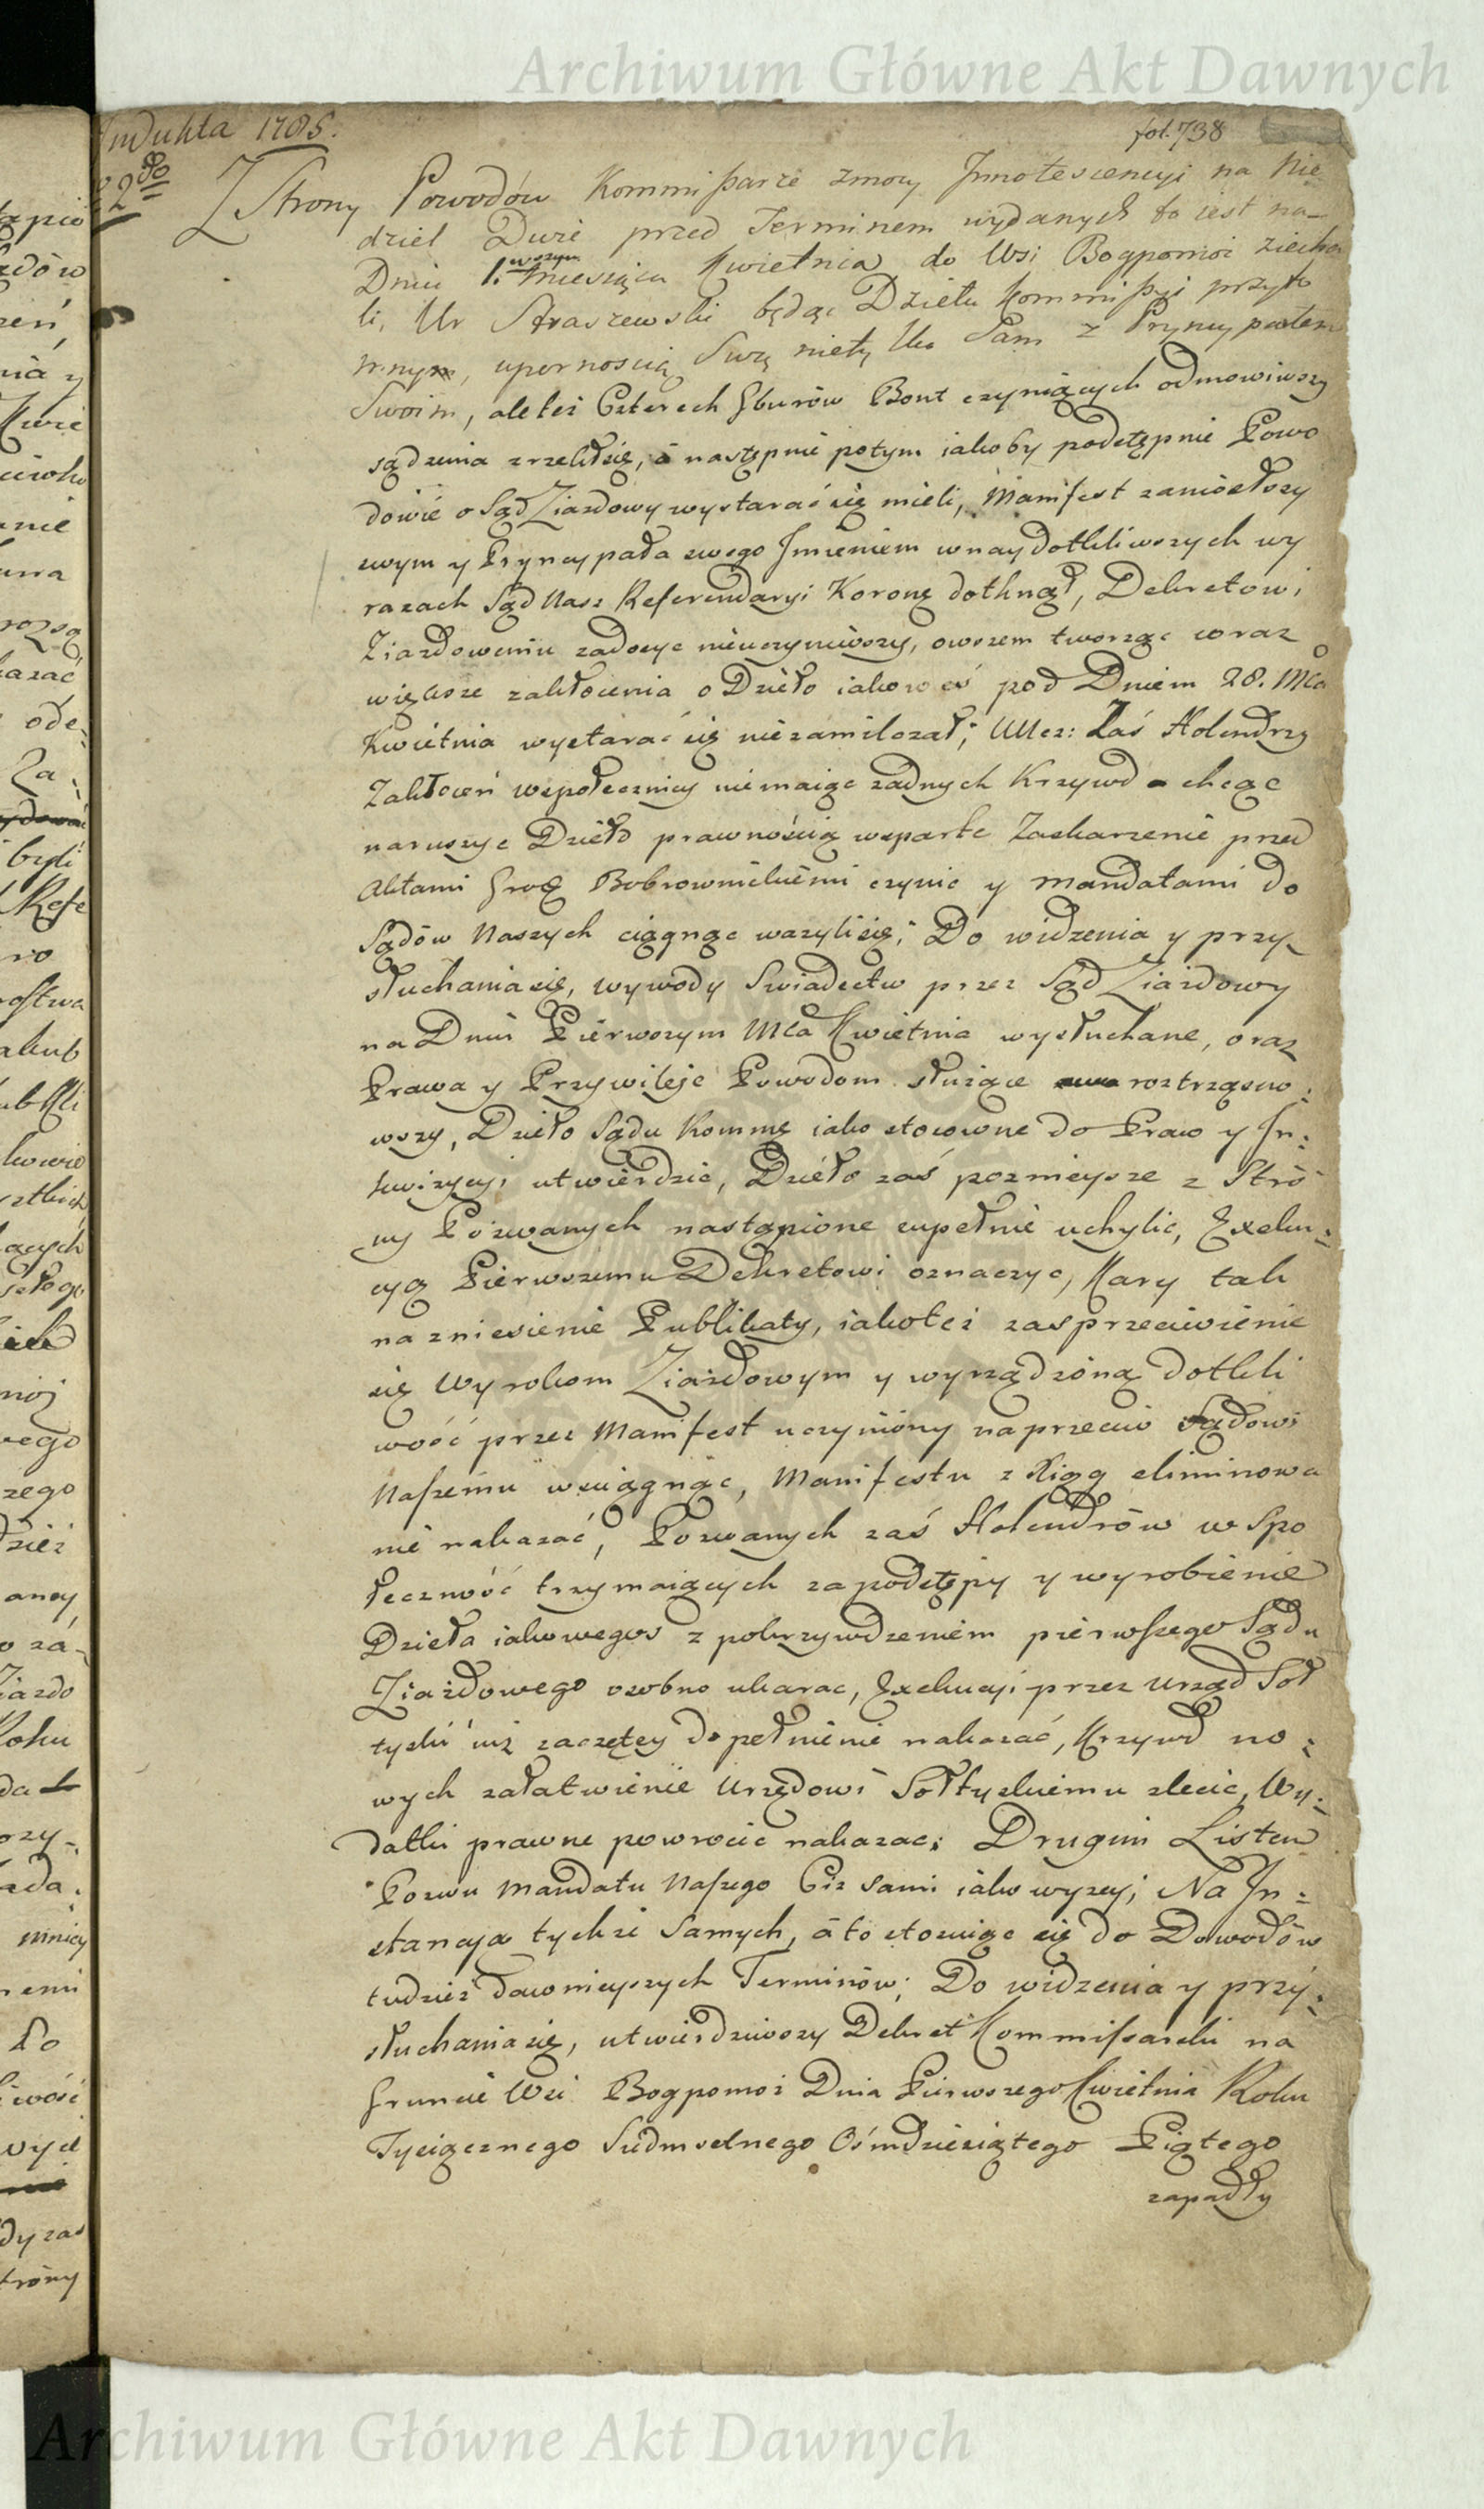 Archiwum Główne Akt Dawnych
Indukta 1785.
fol. 738
22do
Z Strony Powodów Kommißarze zmocy Innotescencyi na Nie
dziel Dwie przed Terminem wydanych to iest na
Dniu 1.wszym Miesiąca Kwietnia do Wsi Bogpomoż ziecha
li, Ur Straszewski będąc Dziełu Kommißyi przyto
mnym, upornością Swą nietylko Sam z Pryncypałem
Swoim, ale też Czterech Gburów Bunt czyniących odmowiwszy
sądzenia zrzekł się, á następnie potym iakoby podstępnie Powo
dowie o Sąd Ziazdowy wystarać się mieli, Manifest zaniosłszy
swym y Pryncypała swego Imieniem w naydotkliwszych wy
razach Sąd Nasz Referendaryi Koronę dotknął, Dekretowi
Ziazdowemu zadosyc nieuczyniwszy, owszem tworząc coraz
większe zakłocenia o Dzieło iakoweś pod Dniem 28. Mca
Kwietnia wystarać się niezamilczał; Ucz: Zaś Holendrzy
Zakłoceń wspołecznicy niemaiąc zadnych Krzywd chcąc
naruszyc Dzieło prawnością wsparte Zaskarzenie przed
Aktami Grodz Bobrownickiemi czynic y Mandatami do
Sądów Naszych ciągnąc wazyli się; Do widzenia y przy-
słuchania się, wywody Swiadectw przez Sąd Ziazdowy
na Dniu Pierwszym Mca Kwietnia wysłuchane, oraz
Prawa y Przywileje Powodom służące roztrząsnow:
wszy, Dzieło Sądu Kommę iako stosowne do Praw y In:
kwizycyi utwierdzic, Dzieło zaś pozniejsze z Stro
ny Pozwanych nastąpione zupełnie uchylic, Exeku:
cyą Pierwszemu Dekretowi oznaczyc, Kary tak
na zniesienie Publikaty, iako też za sprzeciwienie
się Wyrokom Ziazdowym y wyrządzoną dotkli
wość przez Manifest uczyniony naprzeciw Sądowi
Naszemu wsciągnąc, Manifestu z Xiąg eliminowa
nie nakazać, Pozwanych zaś Holendrów w Spo
łeczność trzymaiących za podstępy y wyrobienie
Dzieła iakowegoś z pokrzywdzeniem pierwszego Sądu
Ziazdowego osobno ukarac, Exekucyi przez Urząd Soł
tyski iuż zaczętey dopełnienie nakazać, Krzywd no:
wych załatwienie Urzędowi Sołtyskiemu zlecic, Wy:
datki prawne powrocic nakazac; Drugim Listem
Pozwu Mandatu Naszego Ciż sami iako wyzey; Na In:
stancyą tychże Samych, á to stosuiąc się do Dowodów
tudzież dawnieyszych Terminów; Do widzenia y przy:
słuchania się, utwierdziwszy Dekret Kommißarski na
Gruncie Wsi Bogpomoż Dnia Pierwszego Kwietnia Roku
Tysiącznego Siedmsetnego Ośmdziesiątego Piątego
zapadły
Archiwum Główne Akt Dawnych